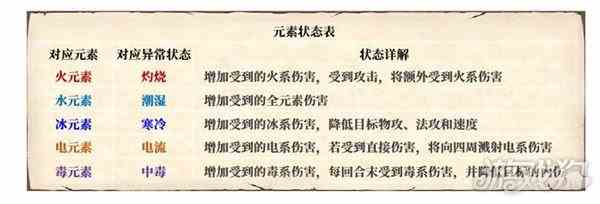 元素状态表
对应元素 对应异常状态 状态详解
火元素 灼烧 增加受到的火系伤害，受到攻击，将额外受到火系伤害
水元素 潮湿 增加受到的全元素伤害
冰元素 寒冷 增加受到的冰系伤害，降低目标物攻、法攻和速度
电元素 电流 增加受到的电系伤害，若受到直接伤害，将向四周溅射电系伤害
毒元素 中毒 增加受到的毒系伤害，每回合末受到毒系伤害，并降低目标的